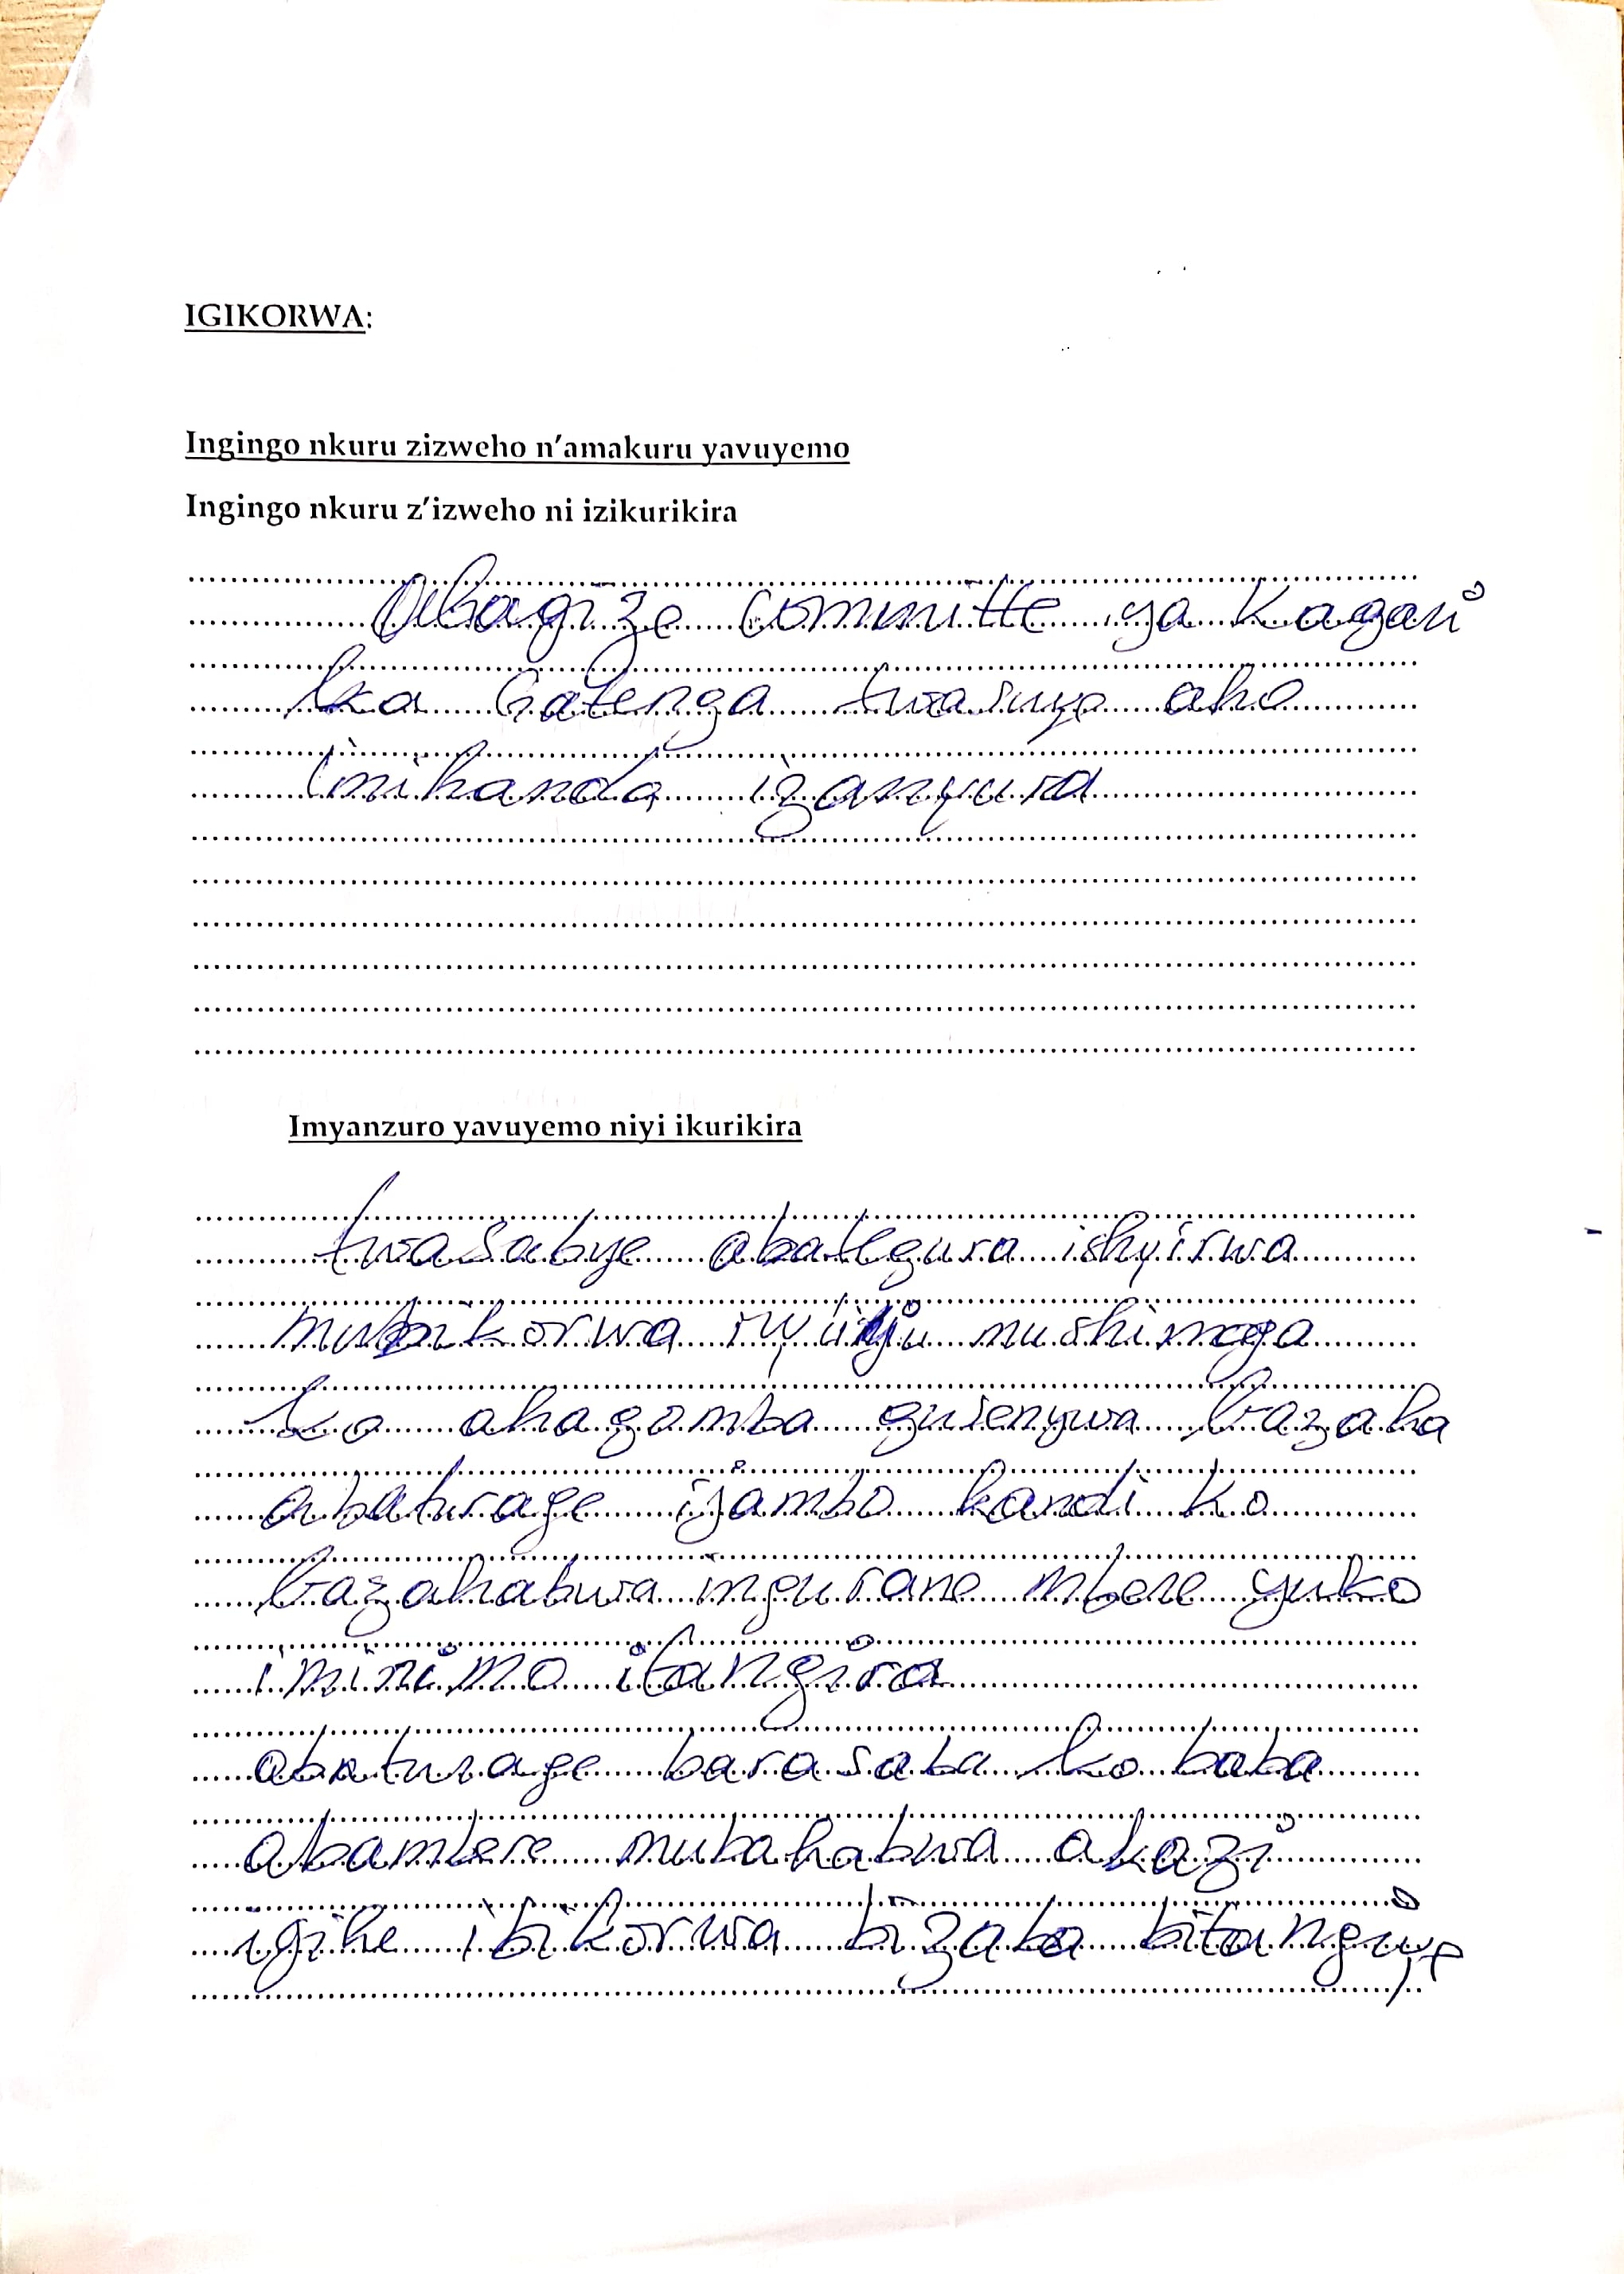 IGIKORWA:
Ingingo nkuru zizweho n'amakuru yavuyemo
Ingingo nkuru z'izweho ni izikurikira
Abagize Committe ya Kagari
ka Gatenga twasuye aho
imihanda izanyura
Imyanzuro yavuyemo niyi ikurikira
twasabye abategura ishyirwa
mubikorwa ry'uyu mushinga
ko ahagomba gusenywa bazaha
abaturage ijambo kandi ko
bazahabwa ingurane mbere yuko
imirimo itangira
abaturage barasaba ko baba
abambere mubahabwa akazi
igihe ibikorwa bizaba bitangiye